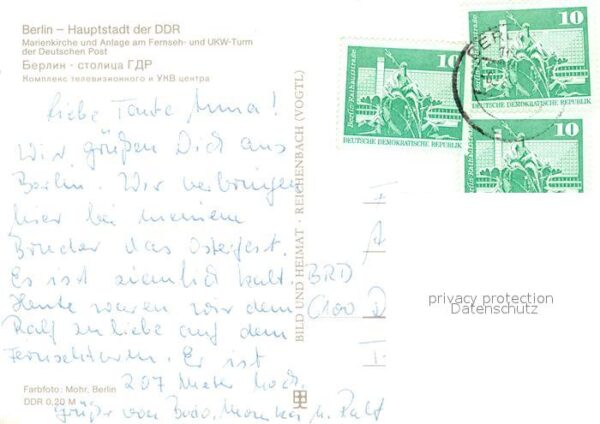 Berlin – Hauptstadt der DDR
Marienkirche und Anlage am Fernseh- und UKW-Turm
der Deutschen Post
Берлин - столица ГДР
Комплекс телевизионного и УКВ центра
Liebe Tante Anna!
Wir grüßen Dich aus
Berlin. Wir verbringen
hier bei meinem
Bruder das Osterfest.
Es ist ziemlich kalt.
Heute waren wir dem
Ralf zuliebe auf dem
Fernsehturm. Er ist
207 Meter hoch.
Grüße von Bodo, Monika u. Ralf
Farbfoto: Mohr, Berlin
DDR 0,20 M
BILD UND HEIMAT · REICHENBACH (VOGTL)
BRD
10
Berlin-Rathausstraße
DEUTSCHE DEMOKRATISCHE REPUBLIK
10
DEUTSCHE DEMOKRATISCHE REPUBLIK
10
Berlin-Rathausstraße
BER
privacy protection
Datenschutz